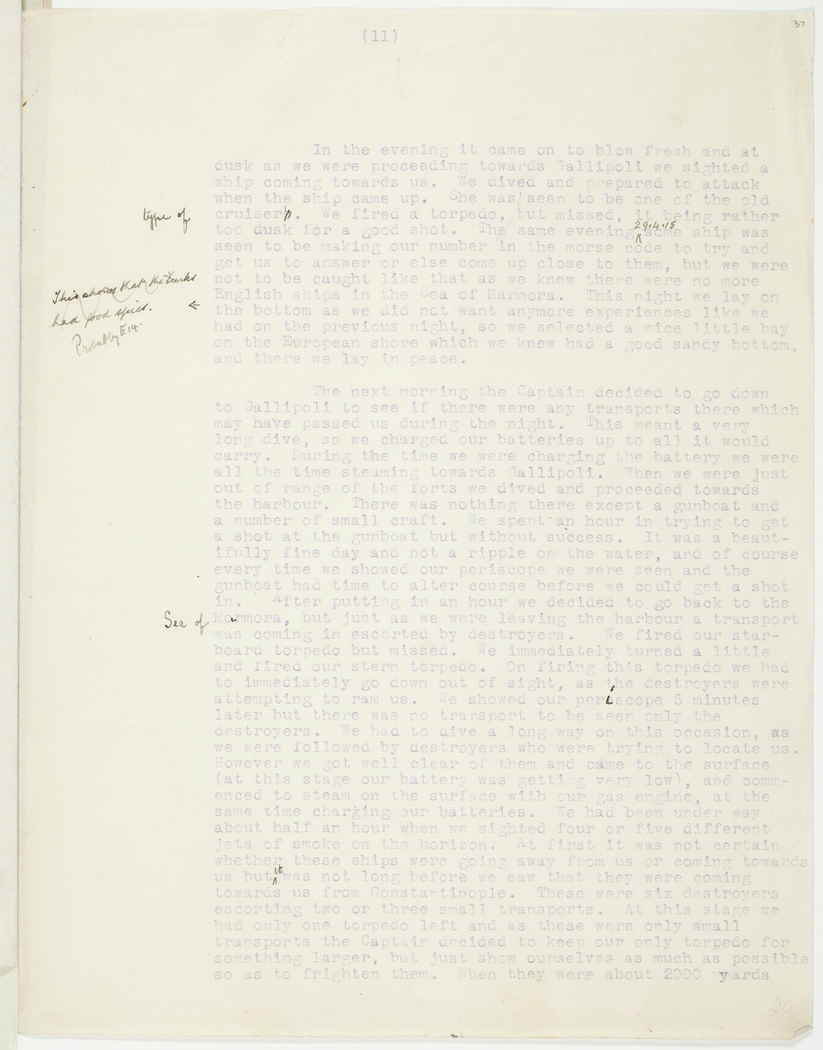 37
(11)
In the evening it came on to blow fresh and at
dusk as we were proceeding towards Gallipoli we sighted a
ship coming towards us. We dived and prepared to attack
when the ship came up. She was seen to be one of the old
type of
cruiser. We fired a torpedo, but missed, it being rather
29.4.15
too dusk for a good shot. The same evening some ship was
seen to be making our number in the morse code to try and
get us to answer or else come up close to them, but we were
This shows that the Turks
had good spies.
Probably E14.
not to be caught like that as we knew there were no more
English ships in the Sea of Marmora. This night we lay on
the bottom as we did not want anymore experiences like we
had on the previous night, so we selected a nice little bay
on the European shore which we knew had a good sandy bottom,
and there we lay in peace.
The next morning the Captain decided to go down
to Gallipoli to see if there were any transports there which
may have passed us during the night. This meant a very
long dive, so we charged our batteries up to all it would
carry. During the time we were charging the battery we were
all the time steaming towards Gallipoli. When we were just
out of range of the forts we dived and proceeded towards
the harbour. There was nothing there except a gunboat and
a number of small craft. We spent an hour in trying to get
a shot at the gunboat but without success. It was a beaut-
ifully fine day and not a ripple on the water, and of course
every time we showed our periscope we were seen and the
gunboat had time to alter course before we could get a shot
in. After putting in an hour we decided to go back to the
Sea of
Marmora, but just as we were leaving the harbour a transport
was coming in escorted by destroyers. We fired our star-
board torpedo but missed. We immediately turned a little
and fired our stern torpedo. On firing this torpedo we had
to immediately go down out of sight, as the destroyers were
attempting to ram us. We showed our periscope 5 minutes
later but there was no transport to be seen only the
destroyers. We had to dive a long way on this occasion, as
we were followed by destroyers who were trying to locate us.
However we got well clear of them and came to the surface
(at this stage our battery was getting very low), and comm-
enced to steam on the surface with our gas engine, at the
same time charging our batteries. We had been under way
about half an hour when we sighted four or five different
jets of smoke on the horizon. At first it was not certain
whether these ships were going away from us or coming towards
us but it was not long before we saw that they were coming
towards us from Constantinople. These were six destroyers
escorting two or three small transports. At this stage we
had only one torpedo left and as these were only small
transports the Captain decided to keep our only torpedo for
something larger, but just show ourselves as much as possible
so as to frighten them. When they were about 2000 yards
20